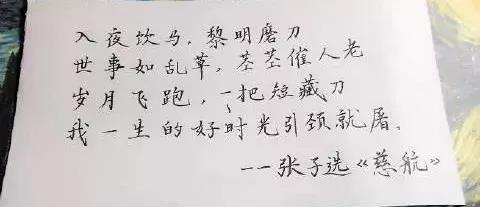 入夜饮马，黎明磨刀
世事如乱草，茎茎催人老
岁月飞跑，一把短藏刀
我一生的好时光引颈就屠。
——张子选《慈航》